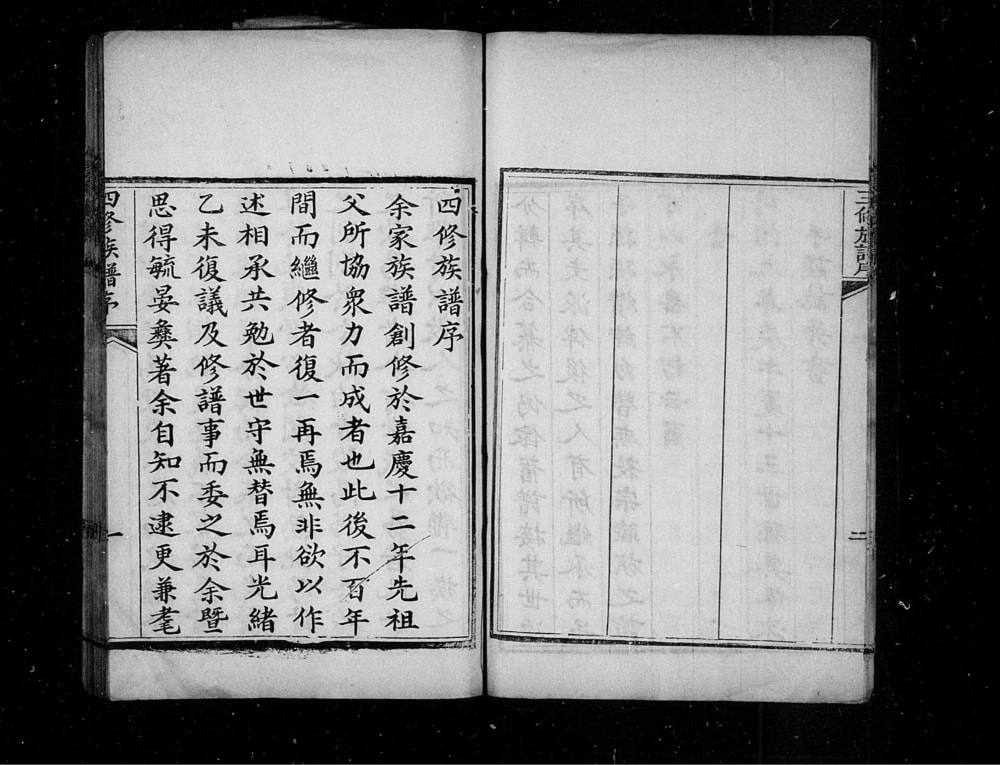 三修族譜序
二
四修族譜序
余家族譜創修於嘉慶十二年先祖
父所協衆力而成者也此後不百年
間而繼修者復一再焉無非欲以作
述相承共勉於世守無替焉耳光緒
乙未復議及修譜事而委之於余暨
思得毓晏彝著余自知不逮更兼耄
四修族譜序
一